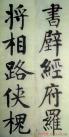 書壁經府羅
將相路俠槐